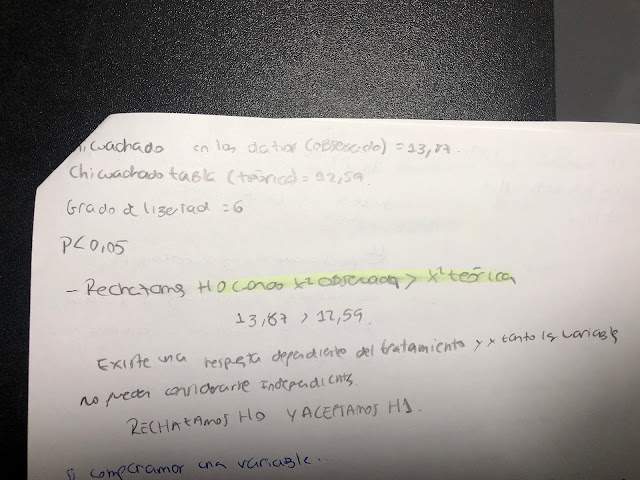 hicuachado en los datos (observado) = 13,87.
Chi cuachado tabla (teórica) = 12,59
Grado de libertad = 6
P<0,05
- Rechazamos H0 cuando X² observada > X² teórica
13,87 > 12,59.
Existe una respuesta dependiente del tratamiento y x tanto la variable
no pueden considerarse independientes.
RECHAZAMOS H0 Y ACEPTAMOS H1.
Si comparamos una variable...